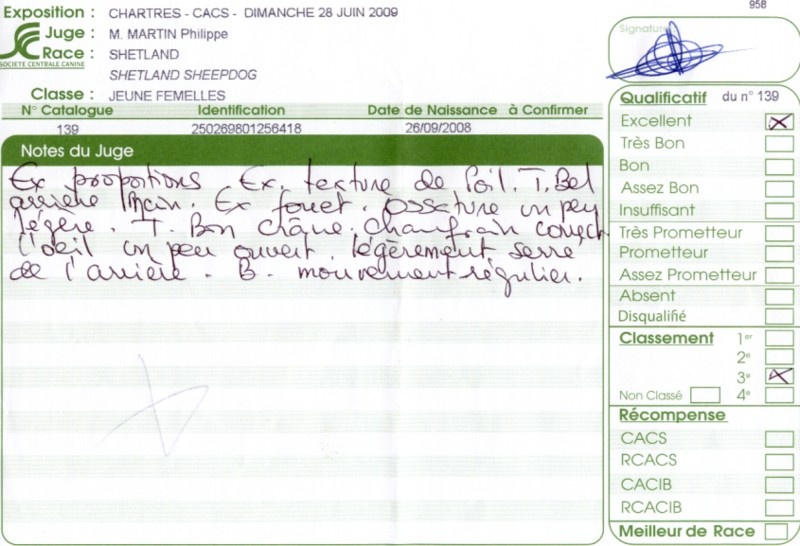 958
Exposition : CHARTRES - CACS - DIMANCHE 28 JUIN 2009
Juge : M. MARTIN Philippe
Race : SHETLAND
SOCIETE CENTRALE CANINE
SHETLAND SHEEPDOG
Classe : JEUNE FEMELLES
N° Catalogue Identification Date de Naissance à Confirmer
139 250269801256418 26/09/2008
Notes du Juge
Ex proportions Ex. texture de Poil. T. Bel
arrière main. Ex fouet. ossature un peu
légère. T. Bon crâne. chanfrain correct
l'oeil un peu ouvert. légèrement serré
de l'arrière. B. mouvement régulier.
Signature
Qualificatif du n° 139
Excellent
Très Bon
Bon
Assez Bon
Insuffisant
Très Prometteur
Prometteur
Assez Prometteur
Absent
Disqualifié
Classement 1er
2e
3e
Non Classé 4e
Récompense
CACS
RCACS
CACIB
RCACIB
Meilleur de Race